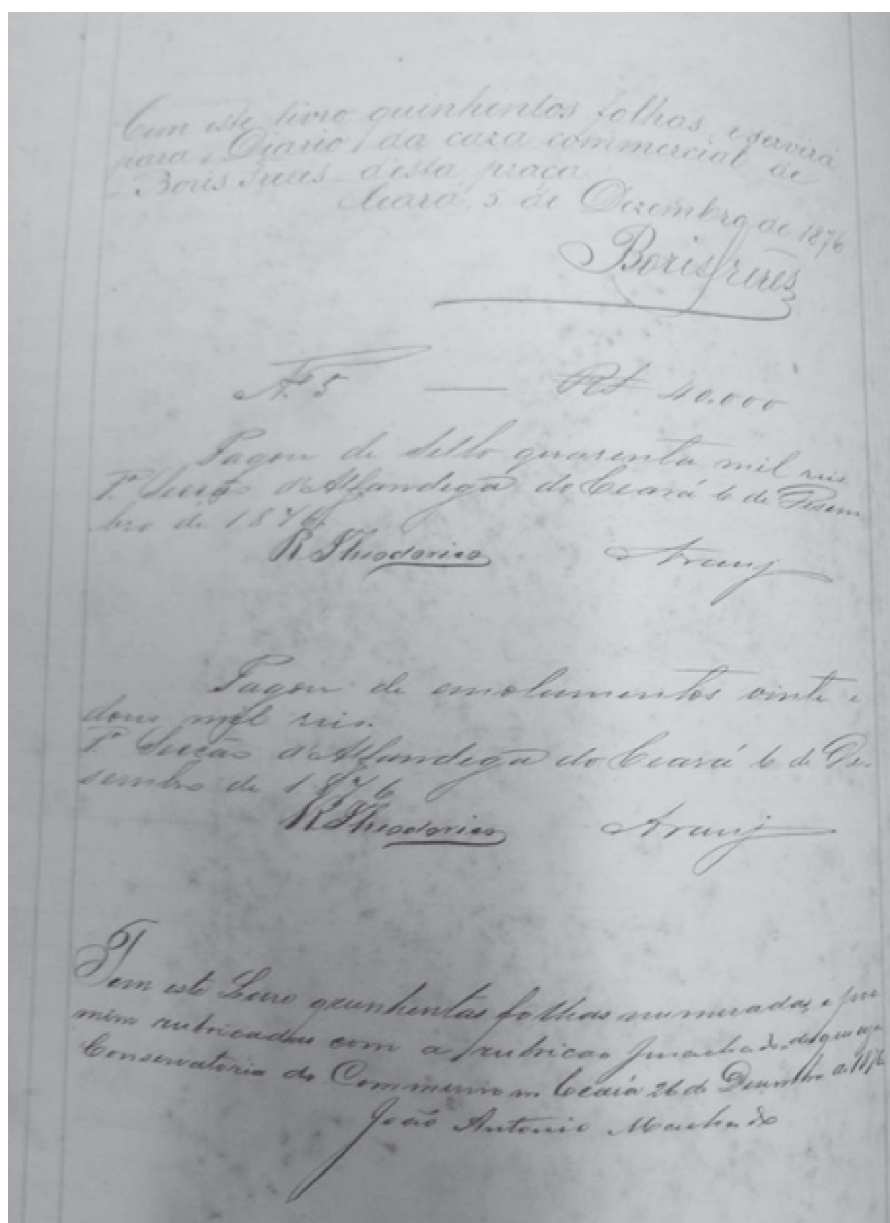 Tem este livro quinhentos folhas, e servirá
para "Diario" da caza commercial de
Boris Frères desta praça.
Ceará, 5 de Dezembro de 1876
Boris Frères
Nº 5 — R$ 40.000
Pagou de sello quarenta mil reis
1ª Secção d'Alfandega do Ceará 6 de Dezem
bro de 1876
R. Theodorico Arauj
Pagou de emolumentos vinte e
dous mil reis.
1ª Secção d'Alfandega do Ceará 6 de De
sembro de 1876
R. Theodorico Arauj
Tem este Livro quinhentas folhas numeradas, e
rubricadas com a rubrica Jmachado, de que uza
Conservatoria do Commercio Ceará 26 de Desembro de 1876
João Antonio Machado